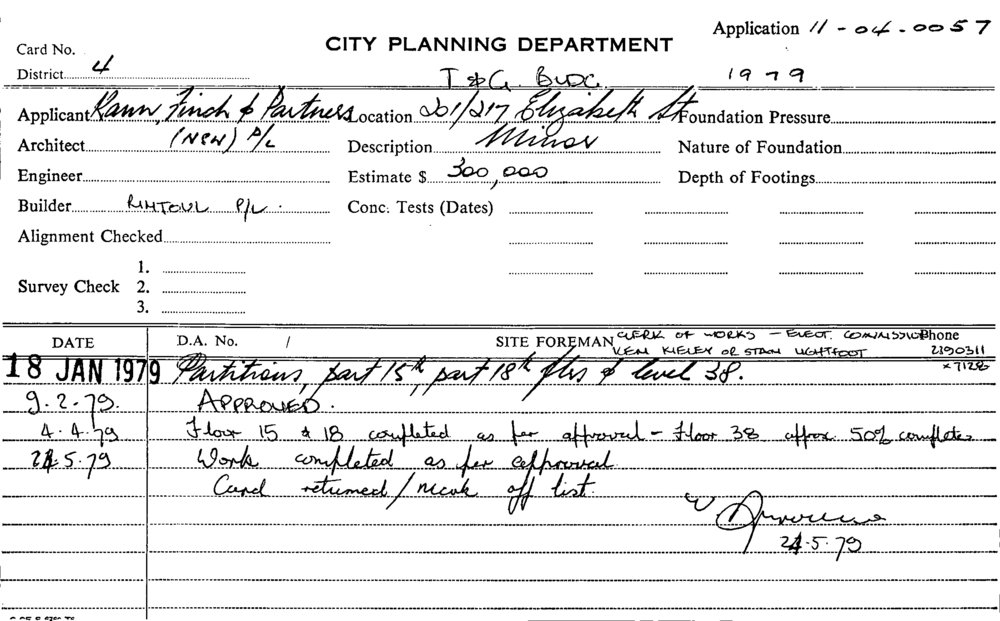 Application 11-04.0057
Card No.
CITY PLANNING DEPARTMENT
District 4
T & G. BLDG. 1979
Applicant Rann, Finch & Partners Location 201/217 Elizabeth St Foundation Pressure
Architect (NSW) P/L Description Minor Nature of Foundation
Engineer Estimate $ 300,000 Depth of Footings
Builder RINTOUL P/L. Conc. Tests (Dates)
Alignment Checked
1.
Survey Check 2.
3.
DATE D.A. No. / SITE FOREMAN CLERK OF WORKS - ELECT. COMMISSION Phone
KEN KIELEY OR STAN LIGHTFOOT 2190311
x7128
18 JAN 1979 Partitions, part 15th, part 18th flrs & level 38.
9.2.79. APPROVED.
4.4.79 Floor 15 & 18 completed as per approval - Floor 38 approx. 50% complete
24.5.79 Work completed as per approval
Card returned/mark off list.
24.5.79